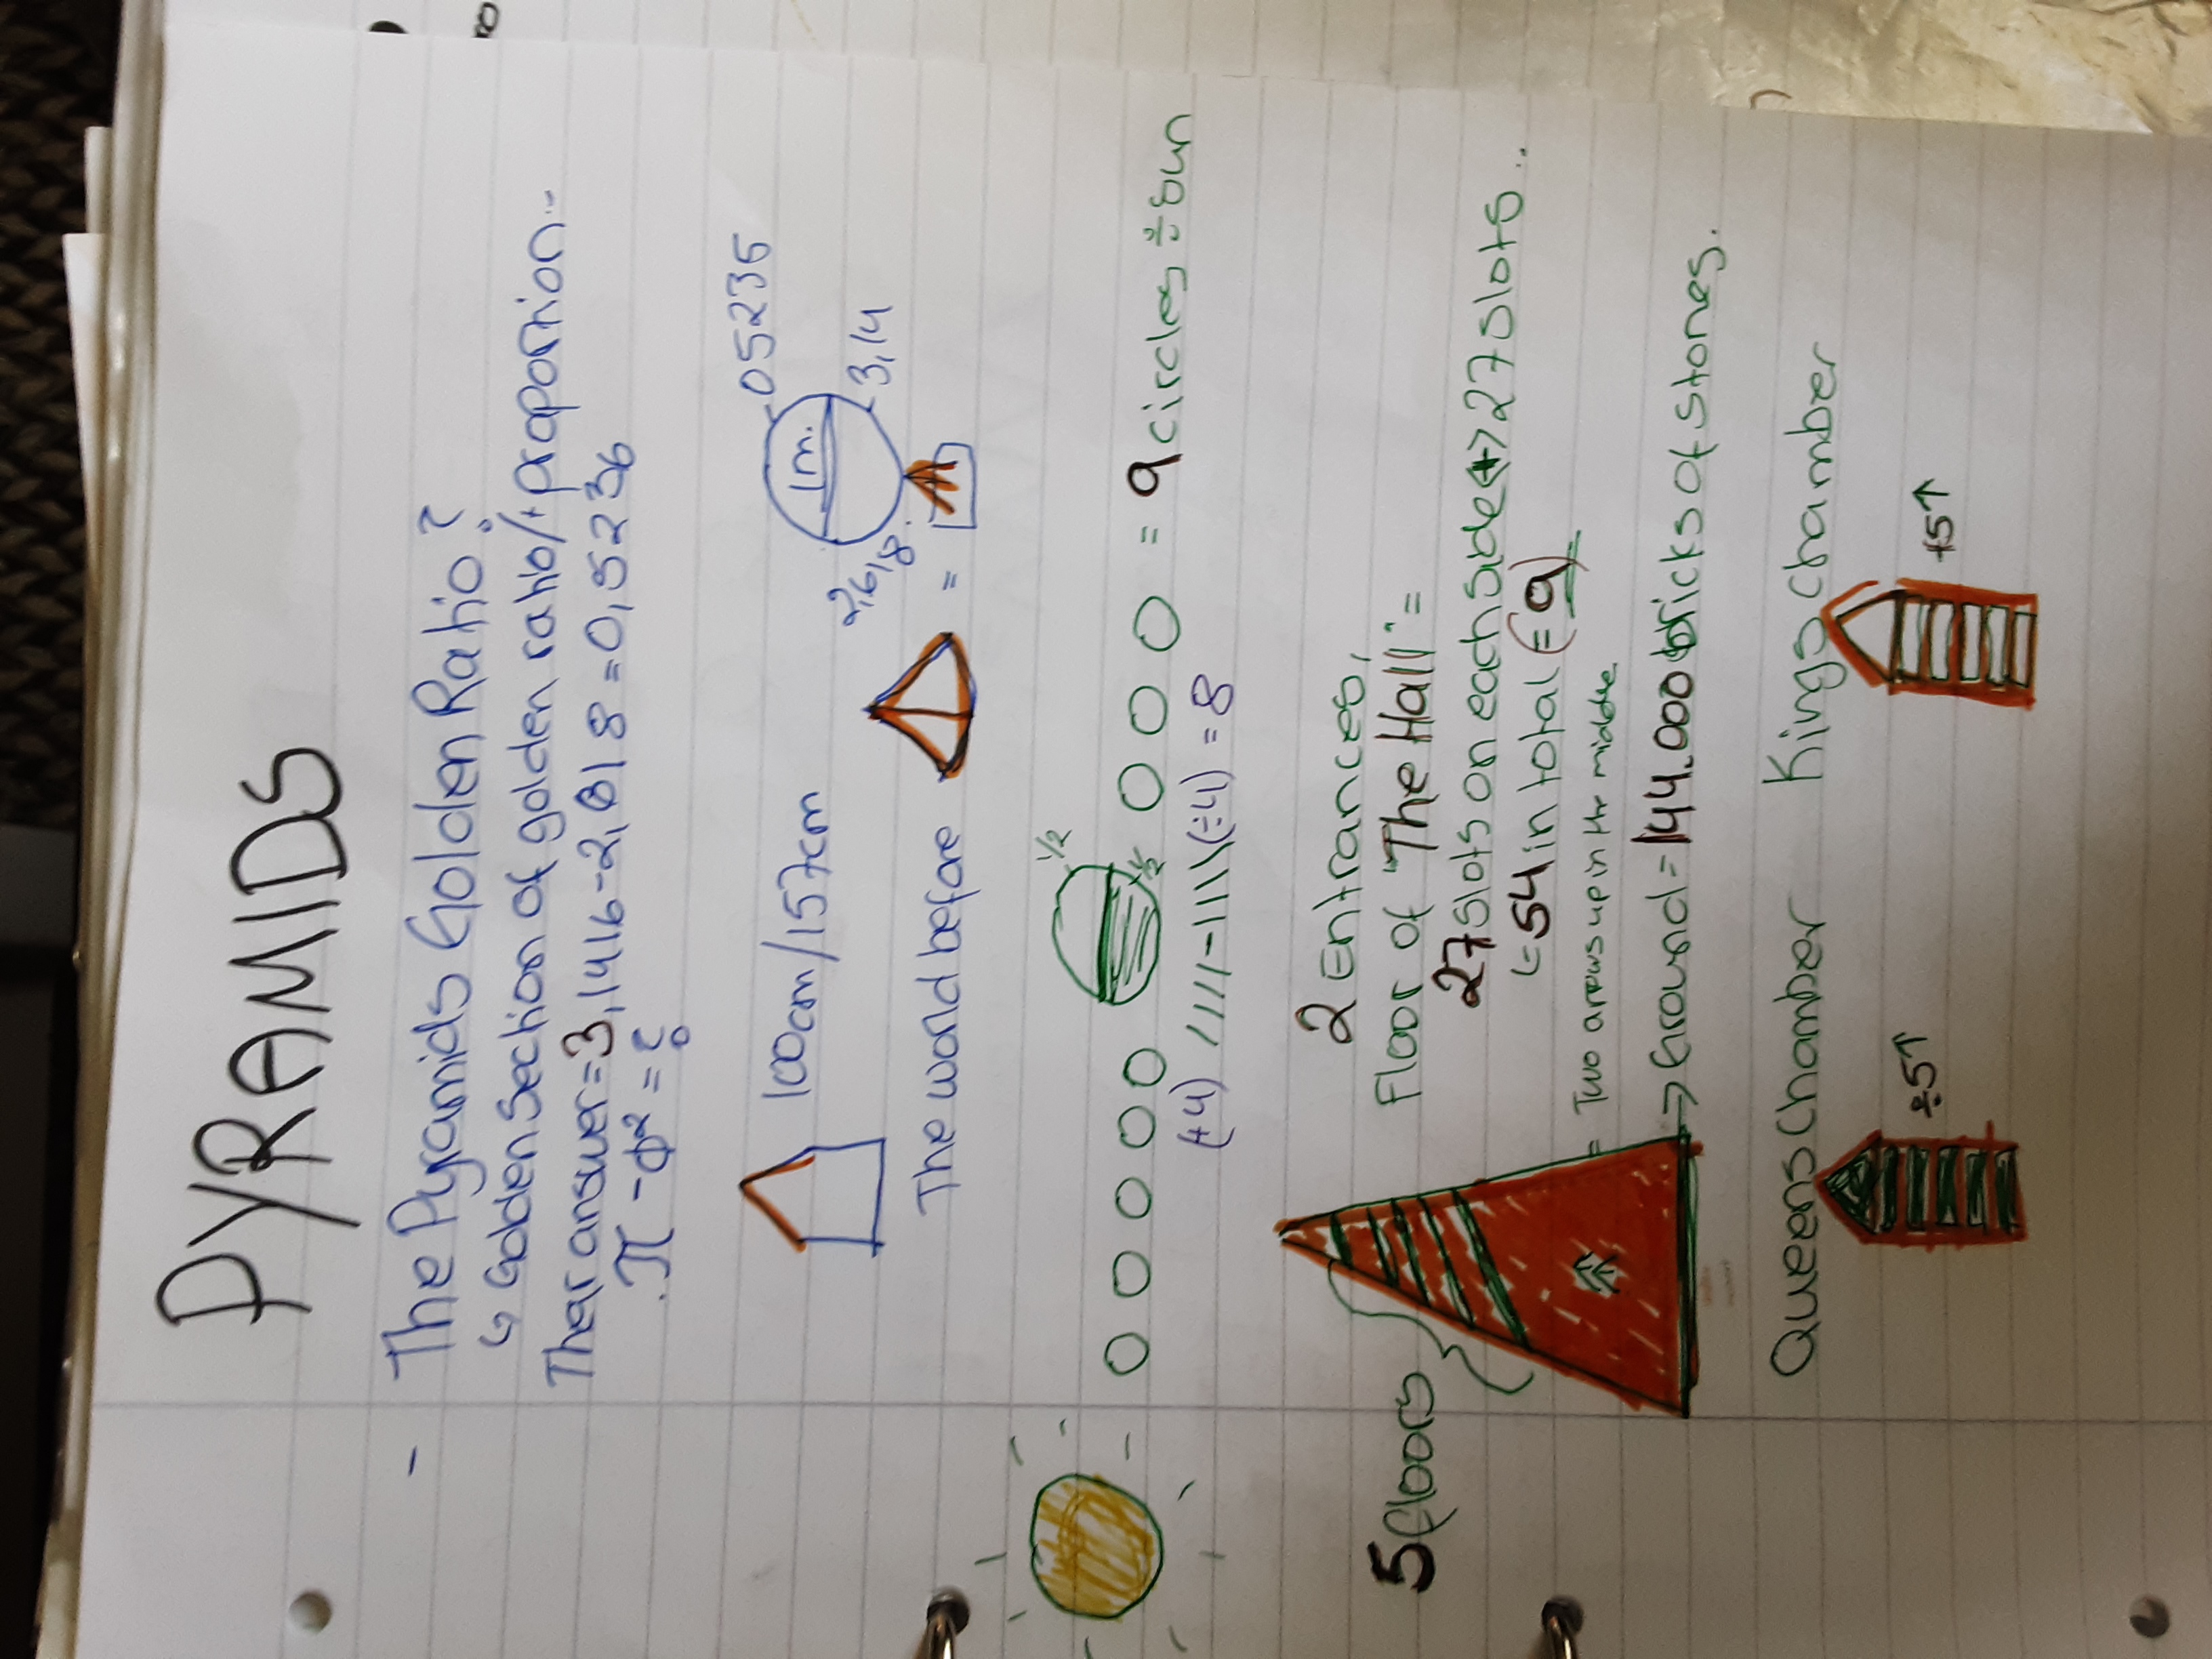 PYRAMIDS
- The Pyramids Golden Ratio?
↳ Golden Section of golden ratio/+ proportion..
Their answer = 3,1416-2,618 = 0,5236
π - Φ² = ?
100cm/157cm
1m.
0 5 2 3 3 5
3,14
2,618
The world before =
1/2
1/2
O O O O O O O O = 9 circles ÷ sun
(+4) //// - \\\\ (÷4) = 8
2 Entrances,
Floor of "The Hall" =
27 slots on each side (+) 27 slots..
= 54 in total (= 9)
= Two arrows up in the middle
→ Ground = 144.000 bricks of stones.
5 floors
Queens Chamber Kings chamber
÷5↑ +5↑